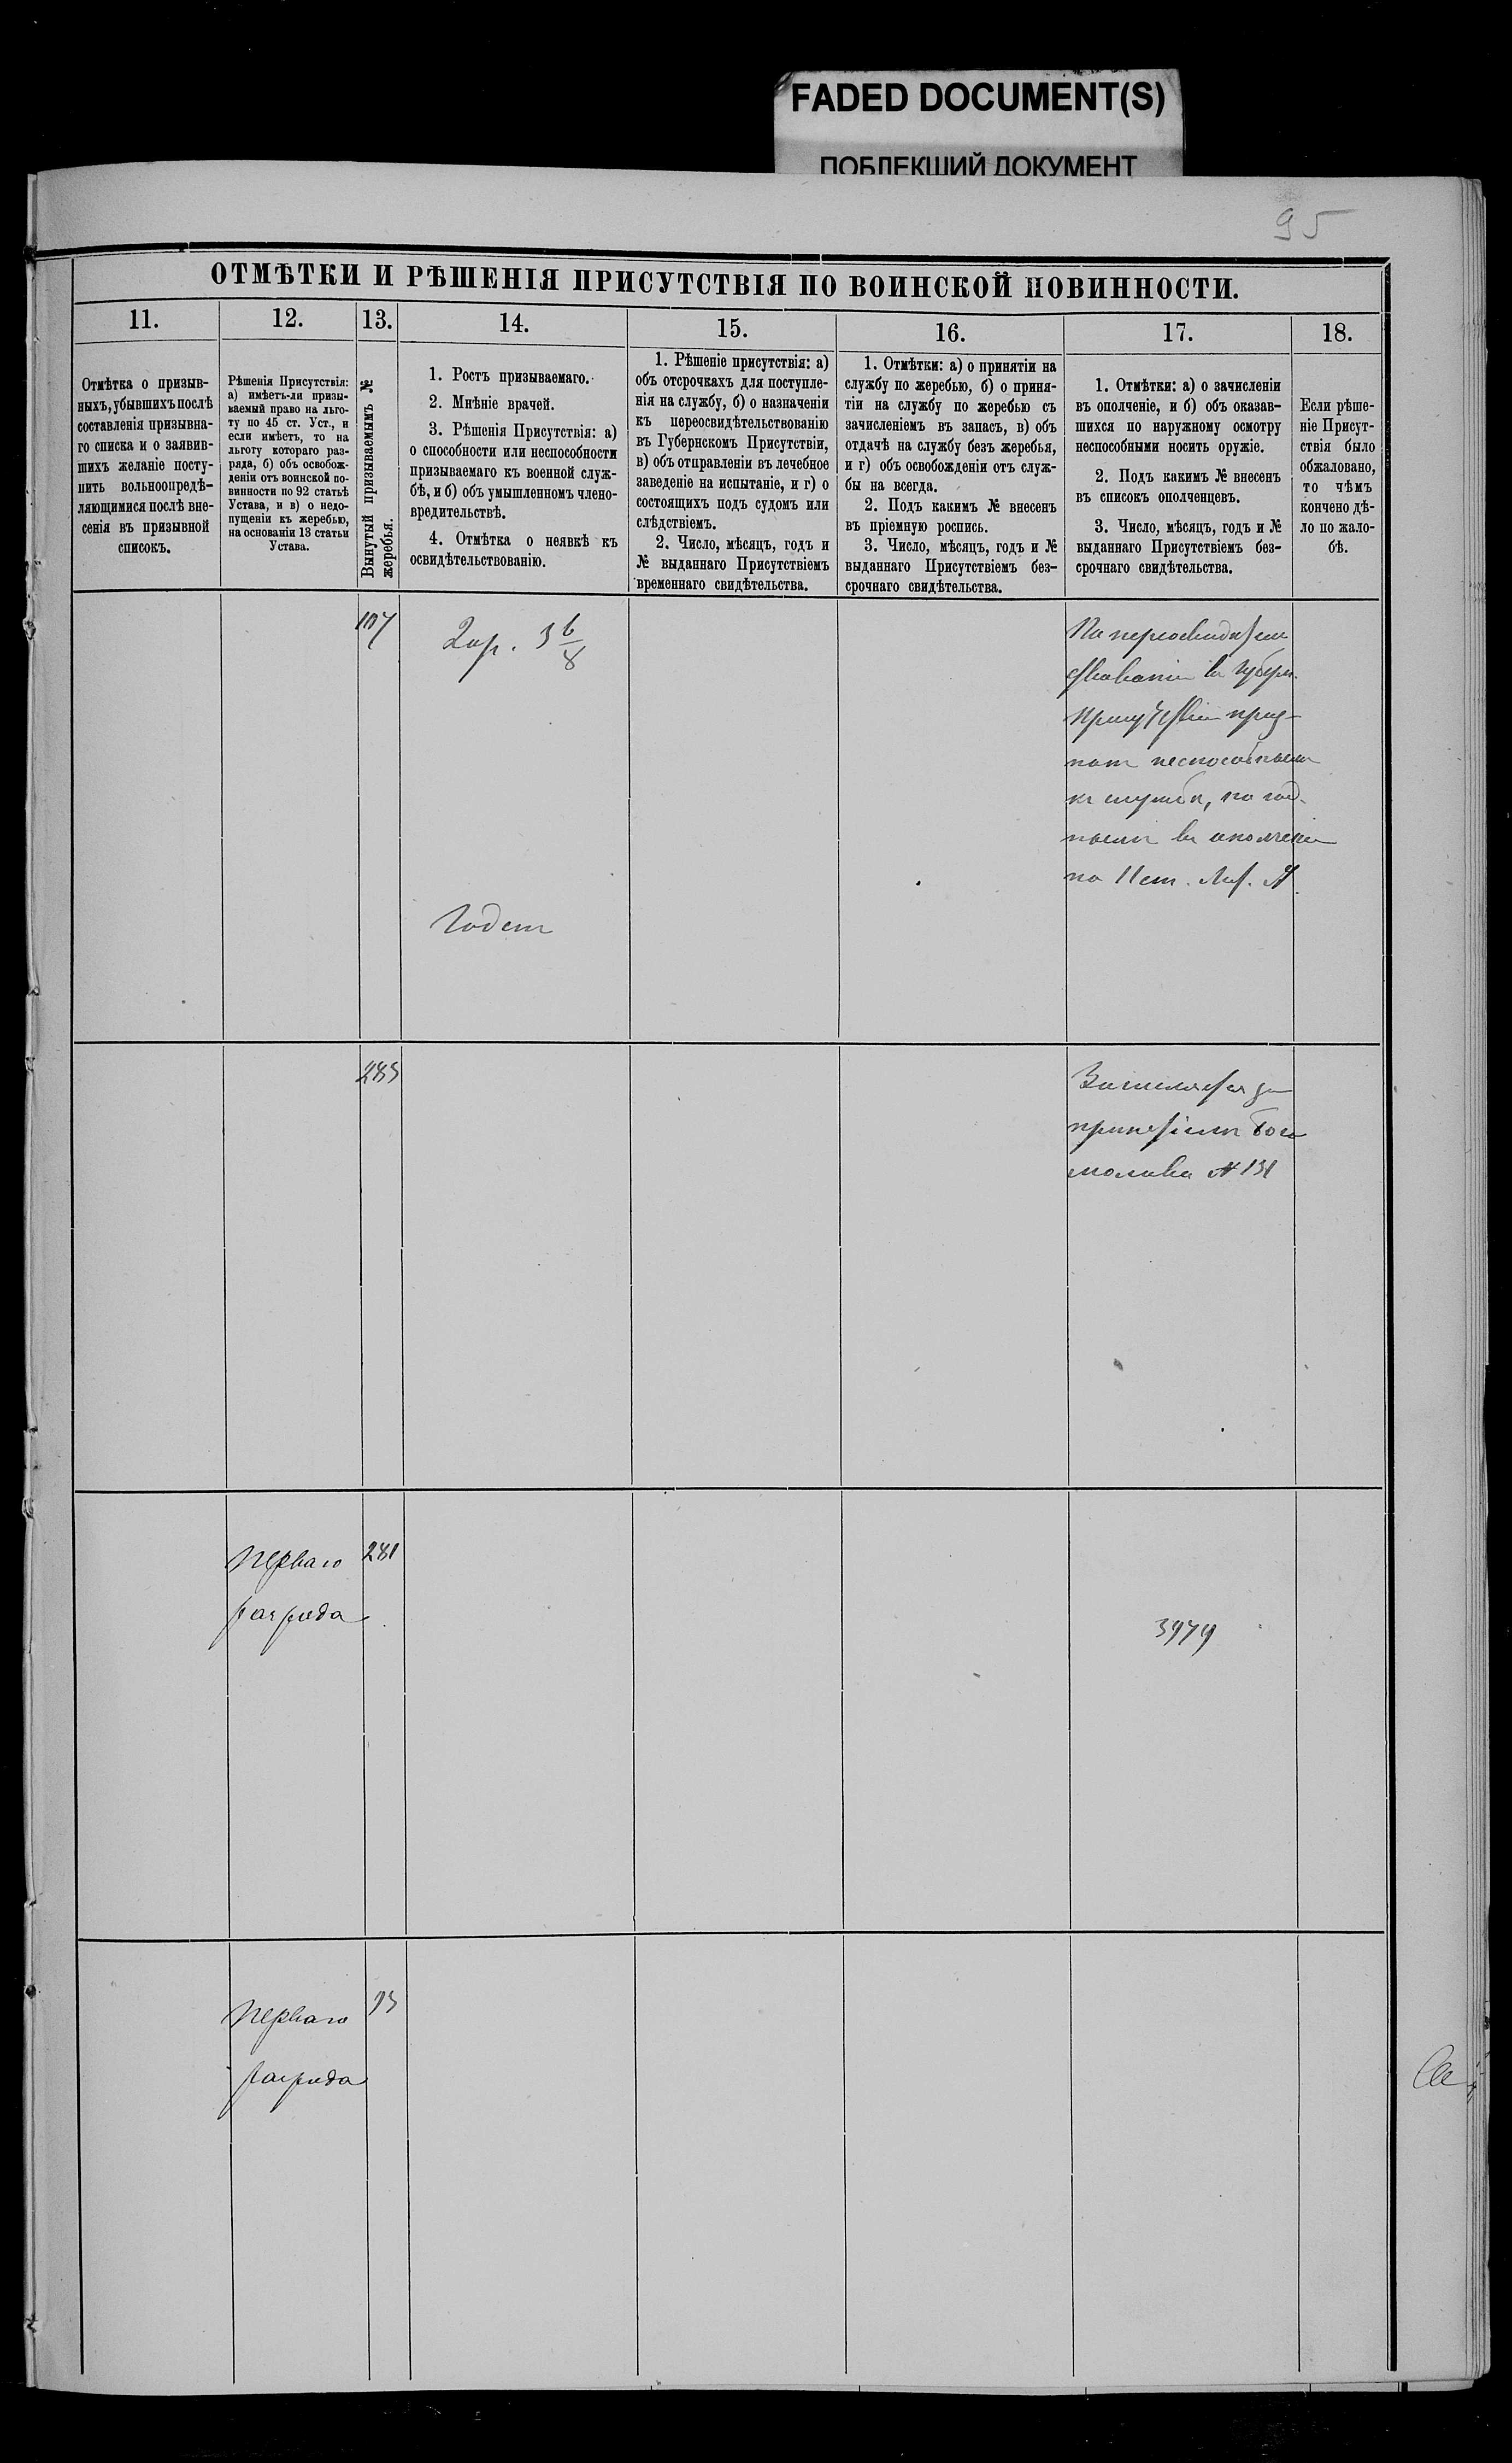 FADED DOCUMENT(S)
ПОБЛЕКШИЙ ДОКУМЕНТ
95
ОТМѢТКИ И РѢШЕНІЯ ПРИСУТСТВІЯ ПО ВОИНСКОЙ ПОВИННОСТИ.
11.
Отмѣтка о призыв-
ныхъ, убывшихъ послѣ
составленія призывна-
го списка и о заявив-
шихъ желаніе посту-
пить вольноопредѣ-
ляющимися послѣ вне-
сенія въ призывной
списокъ.
12.
Рѣшенія Присутствія:
а) имѣетъ-ли призы-
ваемый право на льго-
ту по 45 ст. Уст., и
если имѣетъ, то на
льготу котораго раз-
ряда, б) объ освобож-
деніи отъ воинской по-
винности по 92 статьѣ
Устава, и в) о недо-
пущеніи къ жеребью,
на основаніи 13 статьи
Устава.
13.
Вынутый призываемымъ №
жеребья.
14.
1. Ростъ призываемаго.
2. Мнѣніе врачей.
3. Рѣшенія Присутствія: а)
о способности или неспособности
призываемаго къ военной служ-
бѣ, и б) объ умышленномъ члено-
вредительствѣ.
4. Отмѣтка о неявкѣ къ
освидѣтельствованію.
15.
1. Рѣшеніе присутствія: а)
объ отсрочкахъ для поступле-
нія на службу, б) о назначеніи
къ переосвидѣтельствованію
въ Губернскомъ Присутствіи,
в) объ отправленіи въ лечебное
заведеніе на испытаніе, и г) о
состоящихъ подъ судомъ или
слѣдствіемъ.
2. Число, мѣсяцъ, годъ и
№ выданнаго Присутствіемъ
временнаго свидѣтельства.
16.
1. Отмѣтки: а) о принятіи на
службу по жеребью, б) о приня-
тіи на службу по жеребью съ
зачисленіемъ въ запасъ, в) объ
отдачѣ на службу безъ жеребья,
и г) объ освобожденіи отъ служ-
бы на всегда.
2. Подъ какимъ № внесенъ
въ пріемную роспись.
3. Число, мѣсяцъ, годъ и №
выданнаго Присутствіемъ без-
срочнаго свидѣтельства.
17.
1. Отмѣтки: а) о зачисленіи
въ ополченіе, и б) объ оказав-
шихся по наружному осмотру
неспособными носить оружіе.
2. Подъ какимъ № внесенъ
въ списокъ ополченцевъ.
3. Число, мѣсяцъ, годъ и №
выданнаго Присутствіемъ без-
срочнаго свидѣтельства.
18.
Если рѣше-
ніе Присут-
ствія было
обжаловано,
то чѣмъ
кончено дѣ-
ло по жало-
бѣ.
107
2 ар. 3 6/8
Годенъ
По переосвидѣтель
ствованіи въ Губерн.
Присутствіи приз-
нанъ неспособнымъ
къ службѣ, но год-
нымъ въ ополченіе
по 11 ст. Лит. А.
285
Зачисляется за
принятіемъ
№ 131
Перваго
разряда
281
3979
Перваго
разряда